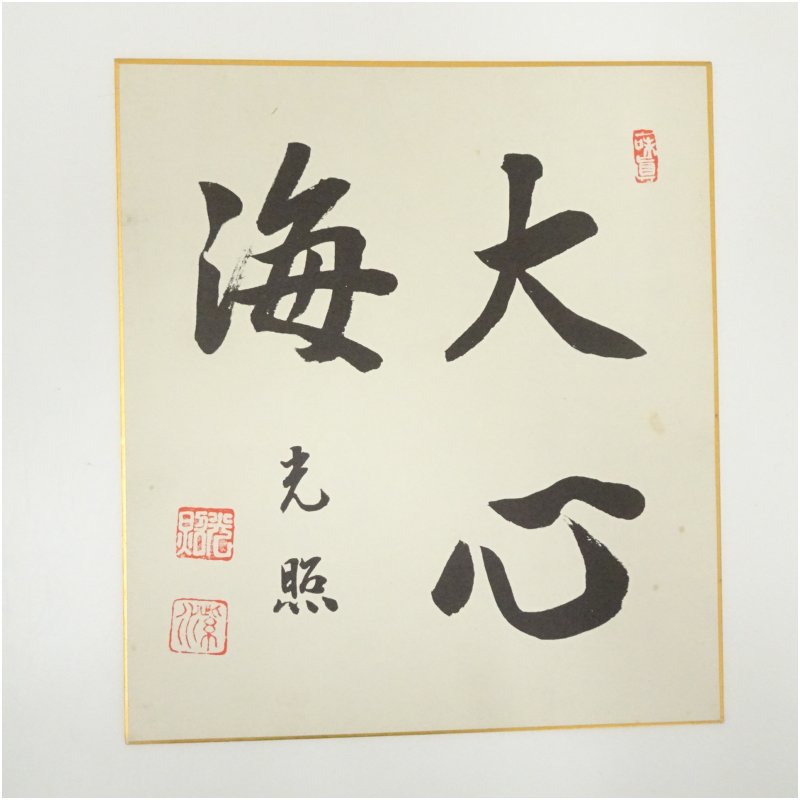 一味真
大心
海
光照
光照
紫水